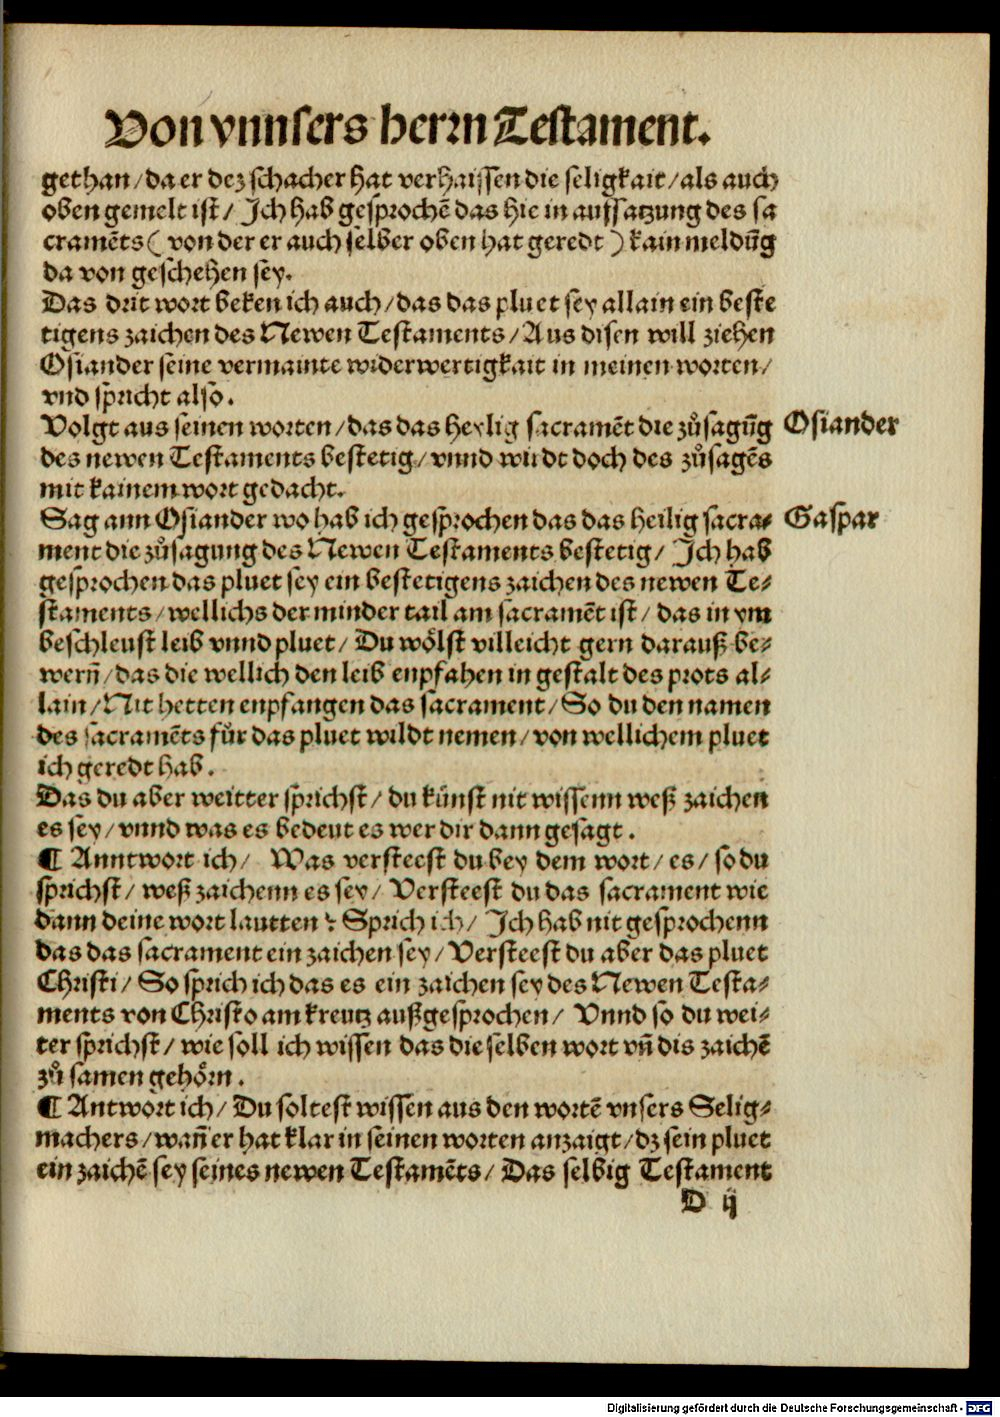 Von vnnsers herrn Testament.
gethan/da er dez schacher hat verhaissen die seligkait/als auch
oben gemelt ist/ Ich hab gesprochē das hie in auffsatzung des sa
cramēts ( von der er auch selber oben hat geredt ) kain meldūg
da von geschehen sey.
Das drit wort beken ich auch/das das pluet sey allain ein beste
tigens zaichen des Newen Testaments/Aus disen will ziehen
Osiander seine vermainte widerwertigkait in meinen worten/
vnd spricht also.
Volgt aus seinen worten/das das heylig sacramēt die zůsagūg
Osiander
des newen Testaments bestetig/vnnd wirdt doch des zůsagēs
mit kainem wort gedacht.
Sag ann Osiander wo hab ich gesprochen das das heilig sacra⸗
Gaspar
ment die zůsagung des Newen Testaments bestetig/ Ich hab
gesprochen das pluet sey ein bestetigens zaichen des newen Te⸗
staments/wellichs der minder tail am sacramēt ist/ das in ym
beschleust leib vnnd pluet/ Du wôlst villeicht gern darauß be⸗
wern̄/das die wellich den leib enpfahen in gestalt des prots al⸗
lain/Nit hetten enpfangen das sacrament/So du den namen
des sacramēts für das pluet wildt nemen/von wellichem pluet
ich geredt hab.
Das du aber weitter sprichst/ du künst nit wissenn weß zaichen
es sey/vnnd was es bedeut es wer dir dann gesagt.
¶ Anntwort ich/ Was versteest du bey dem wort/es/so du
sprichst/ weß zaichenn es sey/ Versteest du das sacrament wie
dann deine wort lautten ? Sprich ich/ Ich hab nit gesprochenn
das das sacrament ein zaichen sey/Versteest du aber das pluet
Christi/ So sprich ich das es ein zaichen sey des Newen Testa⸗
ments von Christo am kreutz außgesprochen/ Vnnd so du wei⸗
ter sprichst/wie soll ich wissen das die selben wort vn̄ dis zaichē
zů samen gehôrn.
¶ Antwort ich/Du soltest wissen aus den wortē vnsers Selig⸗
machers/wan̄ er hat klar in seinen worten anzaigt/dz sein pluet
ein zaichē sey seines newen Testamēts/ Das selbig Testament
D ij
Digitalisierung gefördert durch die Deutsche Forschungsgemeinschaft - DFG